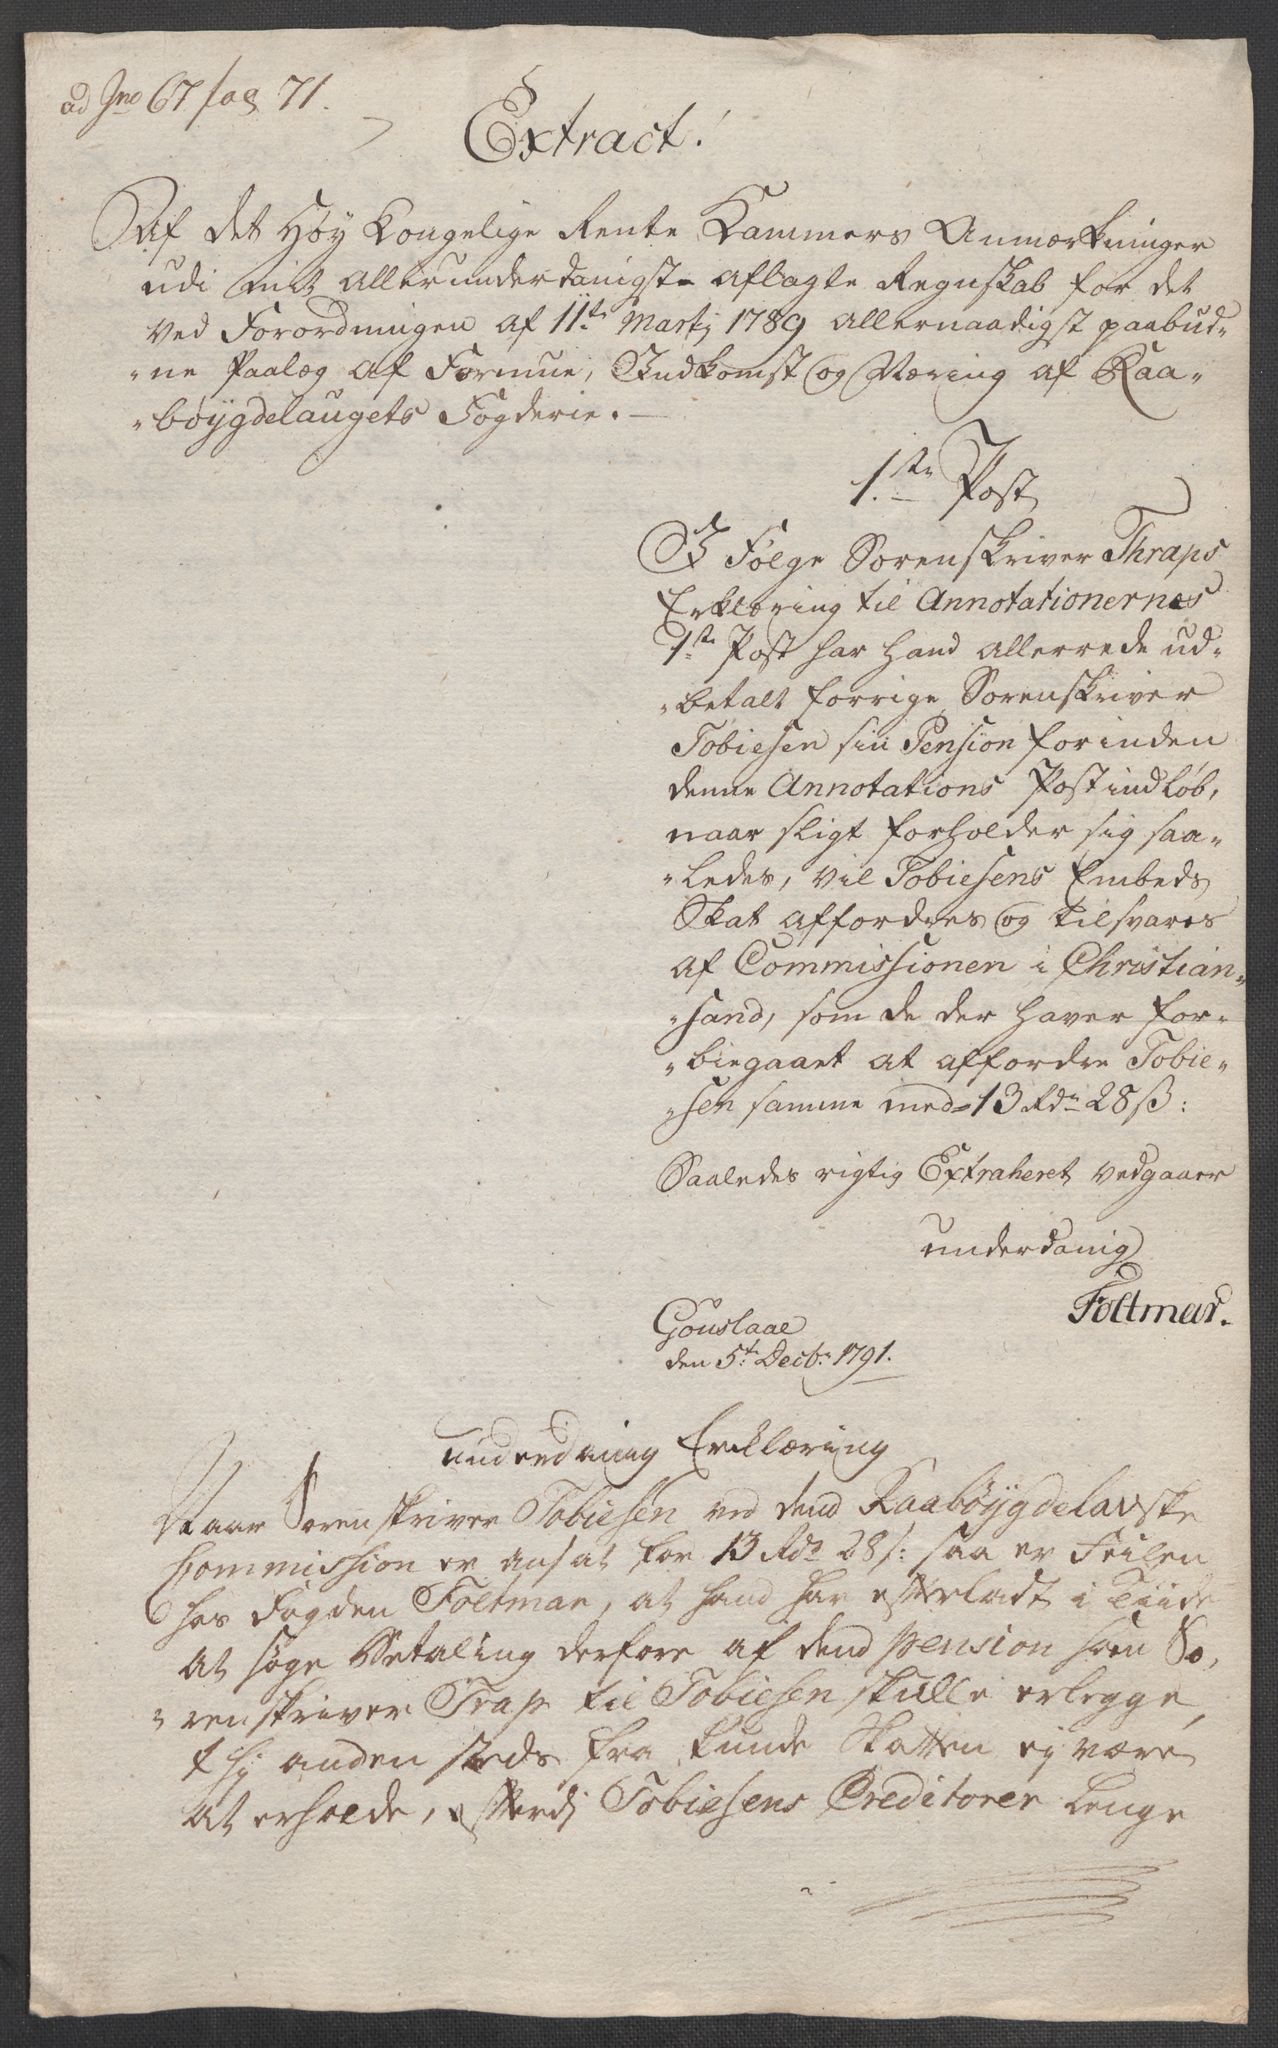 ad Jno 67 pag 71.
Extract.
Af det Høy Kongelige Rente Kammers Anmærkninger
udi mit allerunderdanigst aflagte Regnskab for det
ved Forordningen af 11te Martj 1789 allernaadigst paabud-
-ne Paalæg af Formue, Indkomst og Næring af Raa-
-bøygdelaugets Fogderie. —
1.ste Post
I Følge Sorenskriver Thraps
Erklæring til Annotationernes
1ste Post har hand allerrede ud-
-betalt forrige Sorenskriver
Tobiesen sin Pension forinden
denne Annotations Post indløb,
naar sligt forholder sig saa-
-ledes, vil Tobiesens Embeds
Skat affordres og tilsvares
af Commissionen i Christian-
-sand, som de der haver for-
-biegaaet at affordre Tobie-
-sen samme med 13 Rdr 28 ß:
Saaledes rigtig Extraheret vedgaaer
underdanig
Føltmar.
Gouslaae
den 5te Decbr 1791.
underdanig Erklæring
Naar Sorenskriver Tobiesen ved dend Raabøygdelavske
Commission er ansat for 13 Rdr 28 ß: saa er Feilen
hos Fogden Føltmar, at hand har efterladt i Tiide
at søge Betaling derfore af dend Pension som So-
-renskriver Trap til Tobiesen skulle erlegge,
thj anden steds fra kunde Skatten ej være
at erholde, efterdj Tobiesens Creditorer lenge